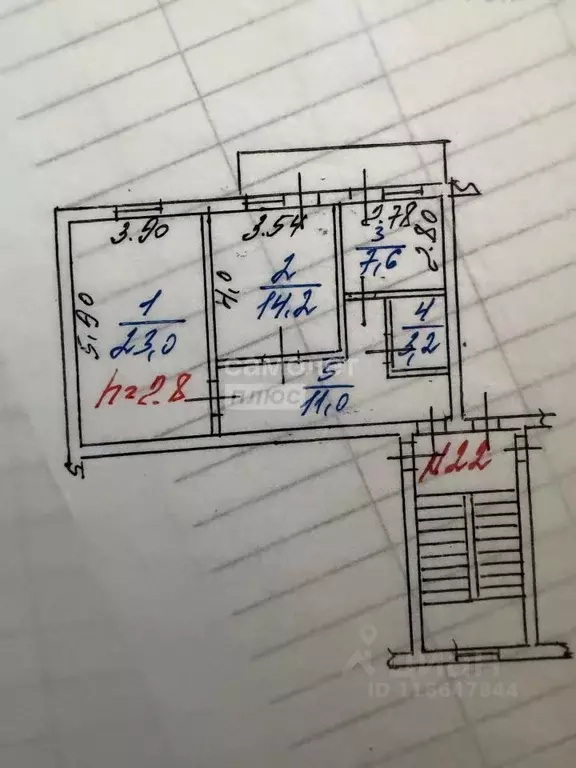 3.90
3.54
2.78
2.80
5.90
4,0
1
23,0
2
14,2
3
7,6
4
3,2
5
11,0
h=2.8
самолет
плюс
N22
циан
ID 115617844